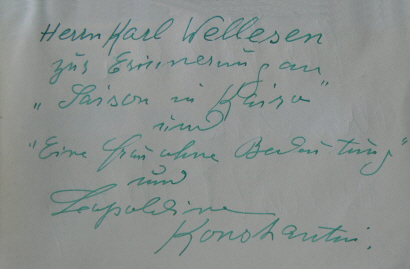 Herrn Karl Wellesen
zur Erinnerung an
"Saison in Kairo"
und
"Eine Frau ohne Bedeutung"
und
Leopoldine
Konstantin.